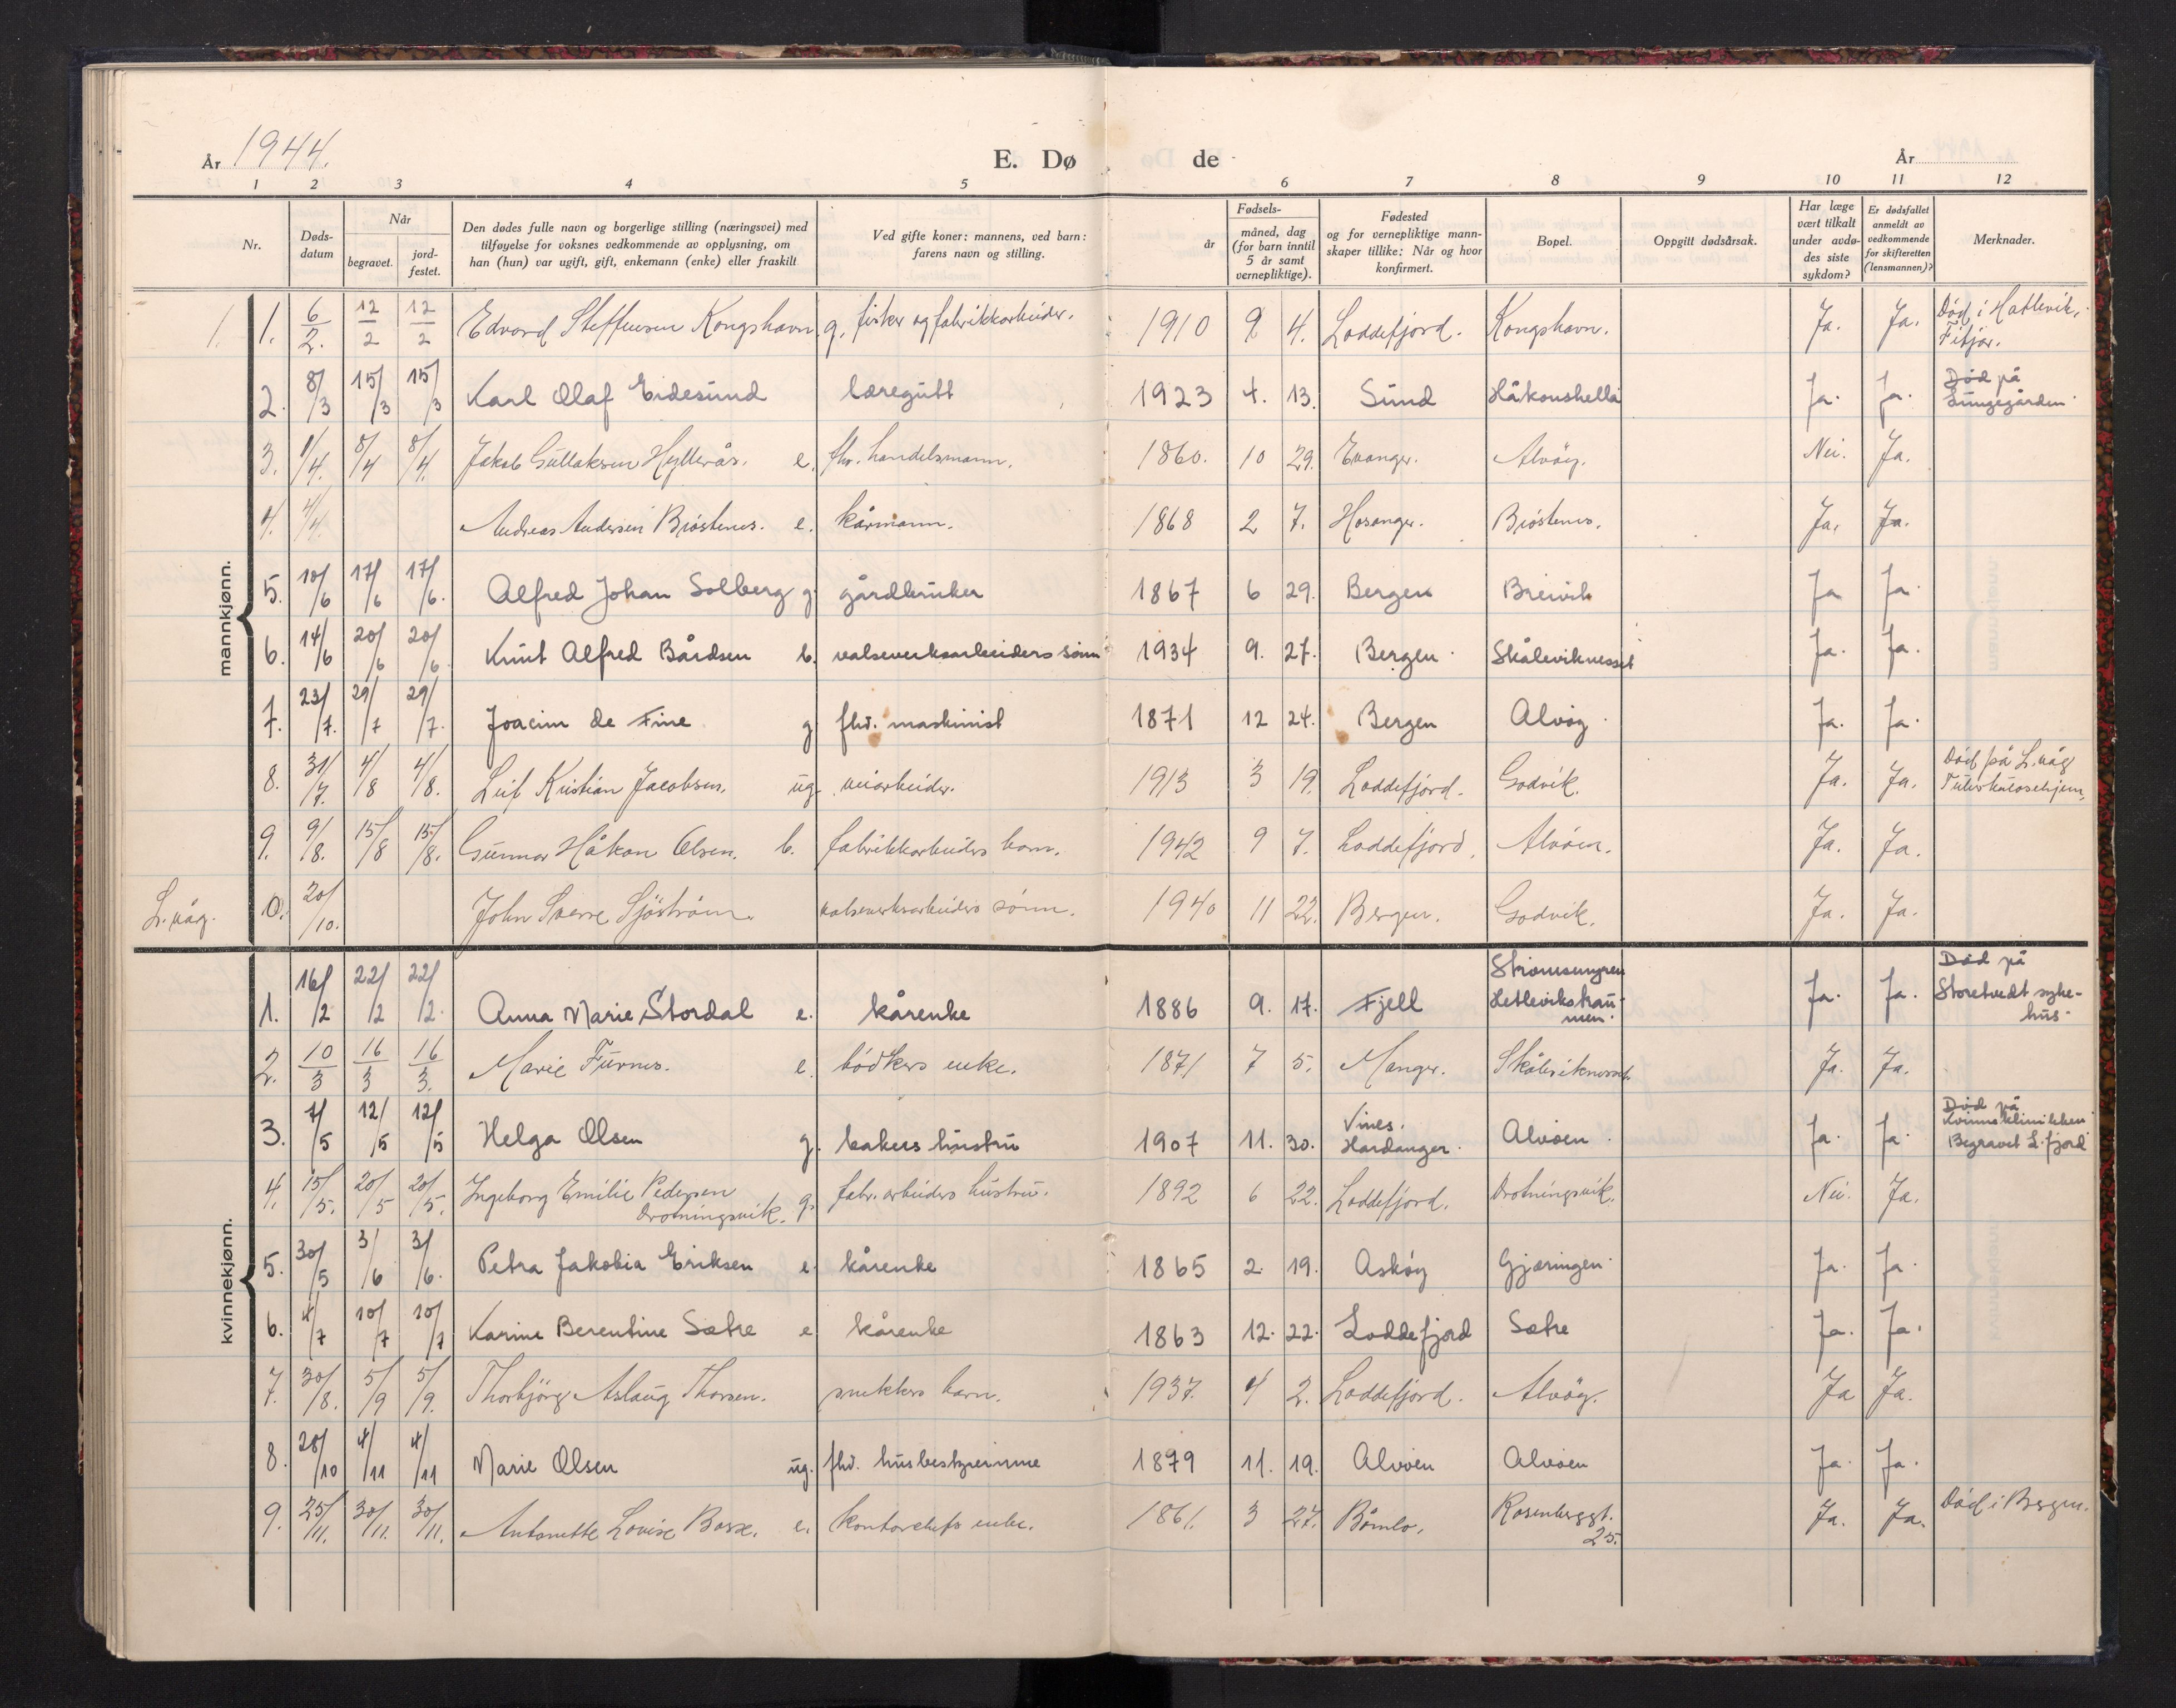 År 1944.
E. Dø de
År
1 2 3 4 5 6 7 8 9 10 11 12
Nr.
Døds-
datum
Når
begravet.
jord-
festet.
Den dødes fulle navn og borgerlige stilling (næringsvei) med
tilføyelse for voksnes vedkommende av opplysning, om
han (hun) var ugift, gift, enkemann (enke) eller fraskilt
Ved gifte koner: mannens, ved barn:
farens navn og stilling.
Fødsels-
år
måned, dag
(for barn inntil
5 år samt
vernepliktige).
Fødested
og for vernepliktige mann-
skaper tillike: Når og hvor
konfirmert.
Bopel.
Oppgitt dødsårsak.
Har læge
vært tilkalt
under avdø-
des siste
sykdom?
Er dødsfallet
anmeldt av
vedkommende
for skifteretten
(lensmannen)?
Merknader.
mannkjønn.
1. 1. 6/2. 12/2 12/2 Edvard Steffensen Kongshavn g. fisker og fabrikkarbeider. 1910 9 4. Loddefjord. Kongshavn. Ja. Ja. Død i Hatlevik,
Fitjar.
2. 8/3 15/3 15/3 Karl Olaf Eidesund læregutt 1923 4. 13. Sund Håkonshella Ja. Ja. Død på
Lungegården.
3. 1/4. 8/4 8/4. Jakob Gullaksen Hyllerås. e. fhv. handelsmann. 1860. 10 29. Evanger. Alvøy. Nei. Ja.
4. 4/4. Andreas Andersen Brøstenes. e. kårmann. 1868 2 7. Hosanger. Brøstenes. Ja. Ja.
5. 10/6 17/6 17/6. Alfred Johan Solberg g. gårdbruker 1867 6 29. Bergen Breivik Ja Ja.
6. 14/6 20/6 20/6. Knut Alfred Bårdsen b. valseverksarbeiders sønn 1934 9. 27. Bergen. Skåleviknesset Ja. Ja.
7. 23/7. 29/7 29/7. Joacim de Fine g. fhv. maskinist 1871 12 24. Bergen Alvøy. Ja. Ja.
8. 31/7. 4/8 4/8. Leif Kristian Jacobsen. ug. veiarbeider. 1913 3 19. Loddefjord. Godvik. Ja. Ja. Død på L.våg
Tuberkulosehjem.
9. 9/8. 15/8 15/8. Gunnar Håkon Olsen. b. fabrikkarbeiders barn. 1942 9 7. Loddefjord. Alvøen. Ja. Ja.
L.våg. 10. 20/10. John Sverre Sjöström. valseverksarbeiders sønn. 1940 11 22. Bergen. Godvik. Ja. Ja.
kvinnekjønn.
1. 16/2 22/2 22/2. Anna Marie Stordal e. kårenke 1886 9. 17. Fjell Strømsmyren
Hetlevikstrau-
men. Ja. Ja. Død på
Storetvedt syke-
hus.
2. 10/3 16/3 16/3. Marie Furnes. e. bødkers enke. 1871 7 5. Manger. Skåleviknesset. Ja. Ja.
3. 7/5 12/5 12/5 Helga Olsen g. bakers hustru 1907 11. 30. Vines.
Hardanger. Alvøen. Ja. Ja. Død på
Kvinneklinikken
Begravet L.fjord
4. 15/5. 20/5 20/5. Ingeborg Emilie Pedersen
Drotningsvik. g. fabr.arbeiders hustru. 1892 6 22. Loddefjord. Drotningsvik. Nei. Ja.
5. 30/5 3/6 3/6. Petra Jakobia Eriksen e. kårenke 1865 2. 19. Askøy Gjæringen. Ja. Ja.
6. 4/7 10/7 10/7 Karine Berentine Sætre e kårenke 1863 12. 22. Loddefjord Sætre Ja. Ja.
7. 30/8. 5/9 5/9. Thorbjørg Aslaug Thorsen. snekkers barn. 1937. 4 2. Loddefjord. Alvøy. Ja Ja.
8. 28/10 4/11 4/11 Marie Olsen ug. fhv. husbestyrerinne 1879 11. 19. Alvøen Alvøen Ja. Ja.
9. 25/11. 30/11. 30/11. Antonette Lovise Basse. e. kontorchefs enke. 1861. 3 27. Bømlo. Rosenberggt.
25. Ja. Ja. Død i Bergen.